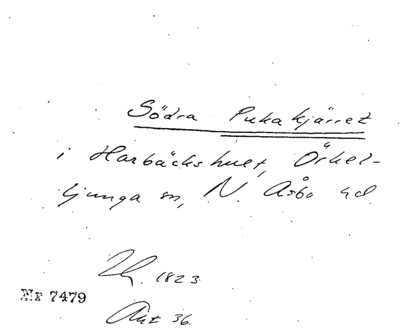 Södra Pukakjärret
i Harbäckshult, Örkel-
ljunga sn, N. Åsbo hd.
1823
Nr 7479
Akt 36.